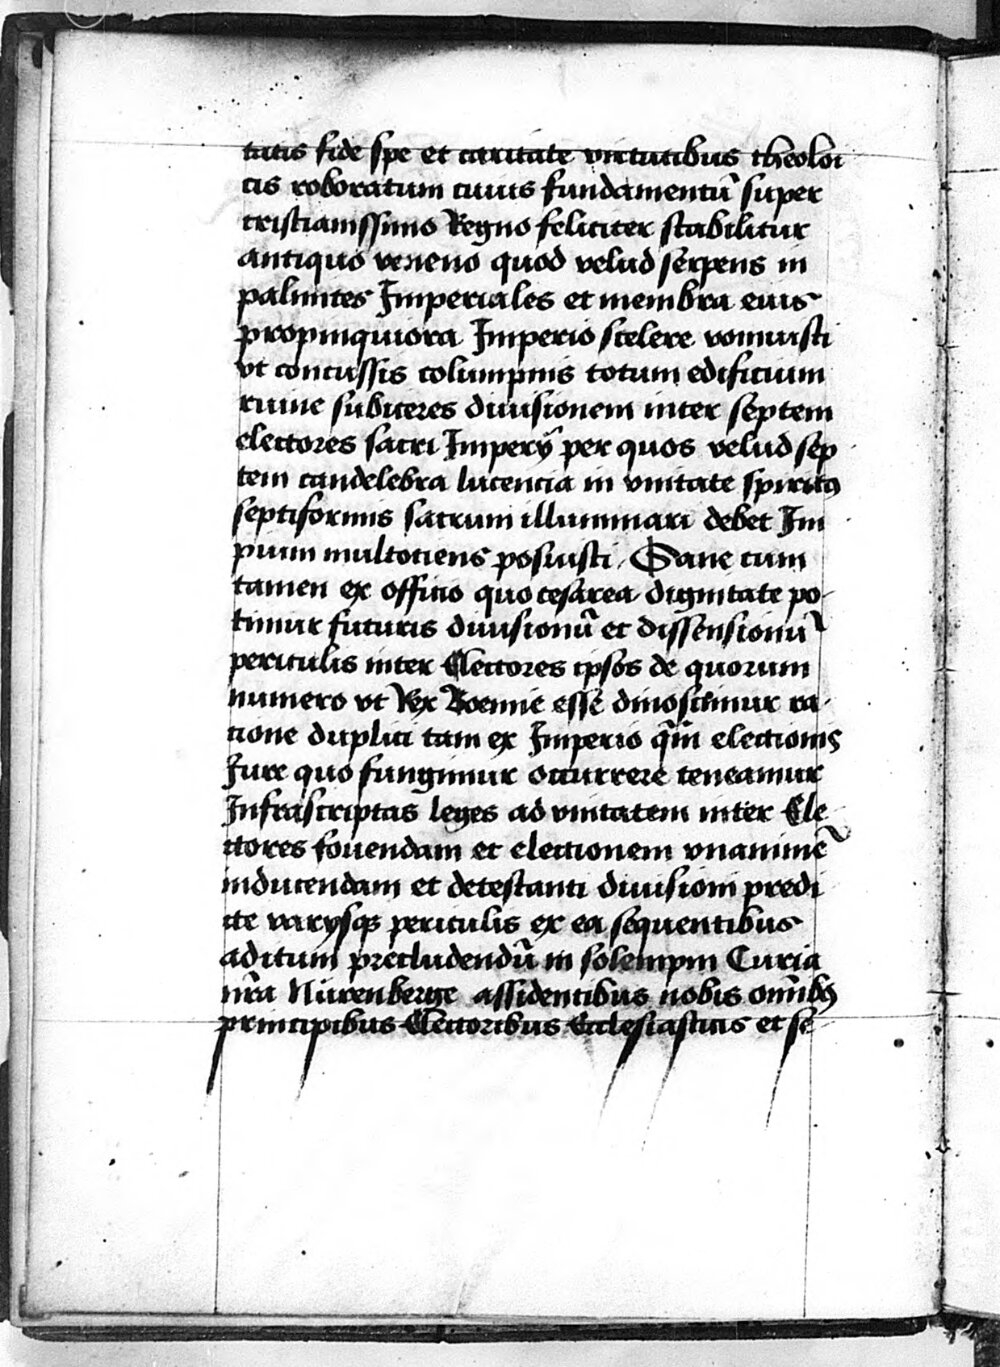 tatis fide spe et caritate virtutibus theoloi
cis roboratum cuius fundamentũ super
cristianissimo Regno feliciter stabilitur
antiquo veneno quod velud serpens in
palmites Imperiales et membra eius
propinquiora Imperio scelere vomuisti
vt concussis columpnis totum edificium
ruine subiceres diuisionem inter septem
electores sacri Imperÿ per quos velud sep
tem candelebra lucencia in vnitate spiritus
septiformis sacrum illuminari debet Im
pium multociens posuisti. Sane cum
tamen ex officio quo cesarea dignitate po
timur futuris diuisionũ et dissensionũ
periculis inter Electores ipsos de quorum
numero vt Rex Boemie esse dinoscimur ra
cione duplici tam ex Imperio q̃m electionis
Jure quo fungimur occurrere teneamur
Infrascriptas leges ad vnitatem inter Ele
ctores fouendam et electionem vnanimẽ
inducendam et detestanti diuisioni predi
cte varÿsqꝫ periculis ex ea sequentibus
aditum precludendũ in solempni Curia
nr̃a Nürenberge assidentibus nobis omĩbꝫ
principibus Electoribus Ecclesiasticis et se